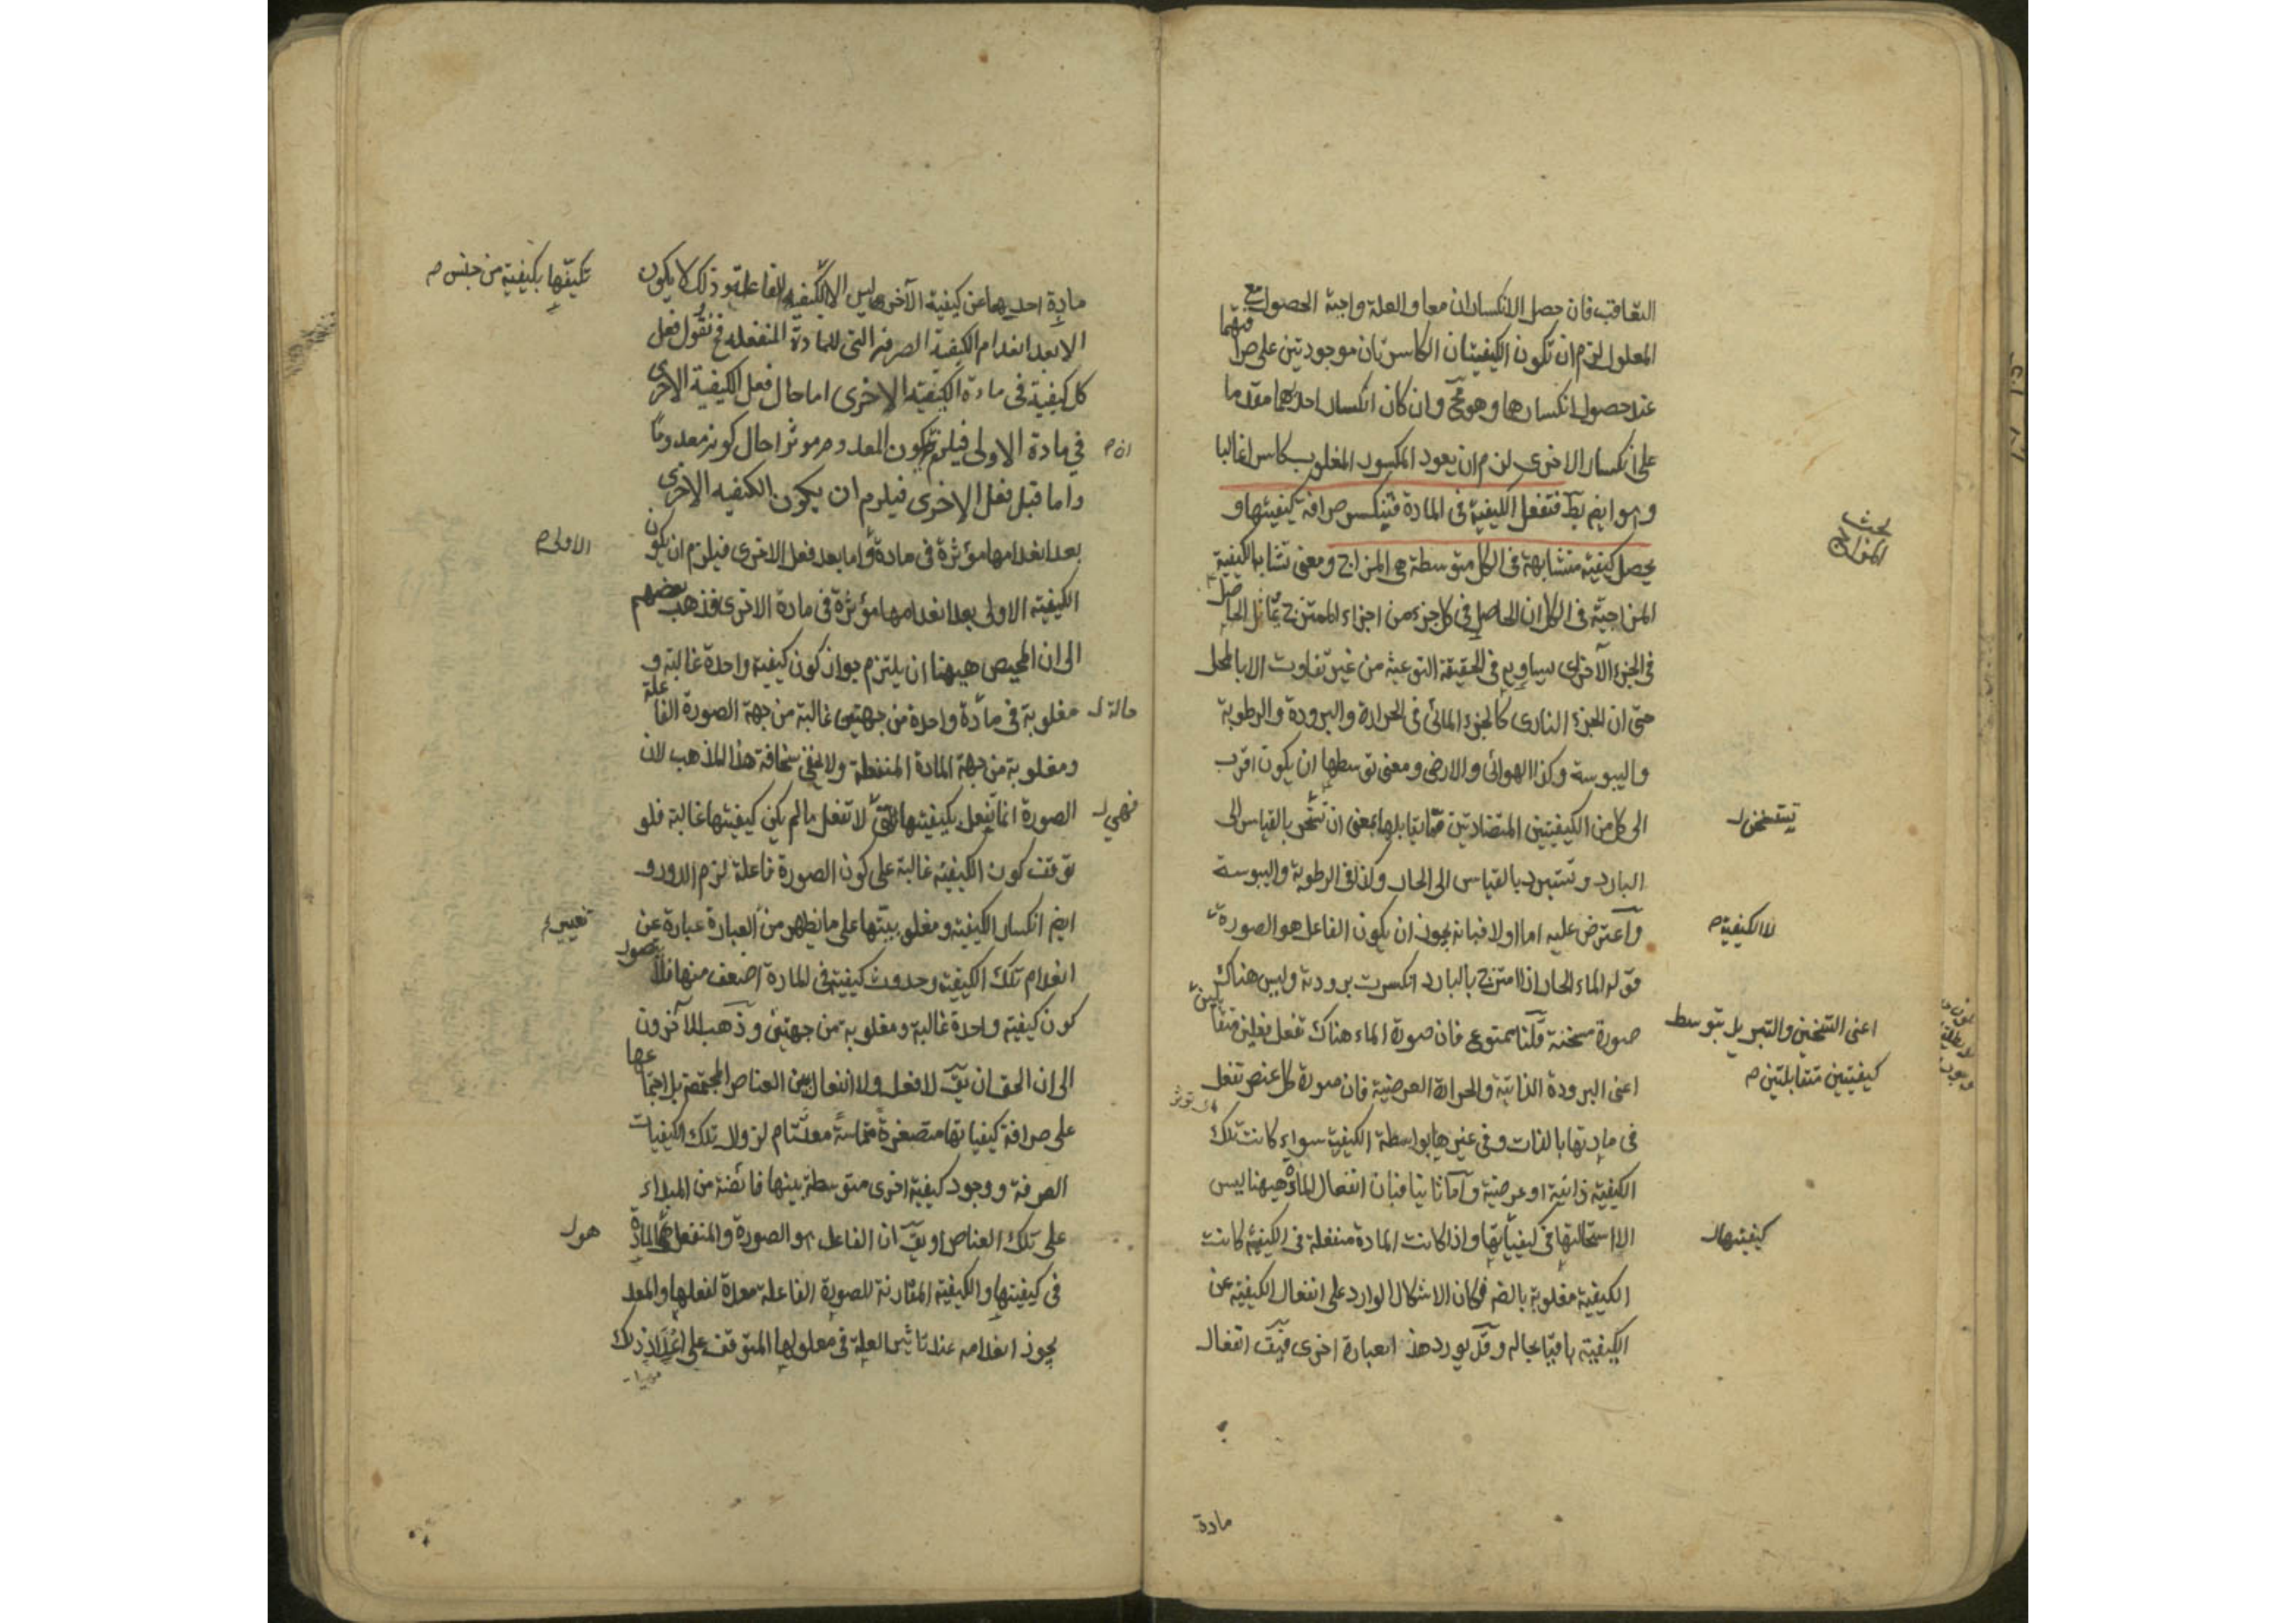 التعاقب فان حصل الانكساران معا والعلة واجبة الحصول مع
المعلول لزم ان تكون الكيفيتان الكاسرتان موجودتين على صرافتهما
عند حصول انكسارهما وهو مح وان كان انكسار احديهما مقدما
على انكسار الاخرى لزم ان يعود المكسور المغلوب كاسرا غالبا
وهو ايض بط فتفعل الكيفية فى المادة فينكسر صرافة كيفيتها و
يحصل كيفية متشابهة فى الكل متوسطة هى المزاج ومعنى تشابه الكيفية
بحث المزاج
المزاجية فى الكل ان الحاصل فى كل جزء من اجزاء الممتزج يماثل الحاصل
فى الجزء الآخر اى يساويه فى الحقيقة النوعية من غير تفاوت الا بالمحل
حتى ان الجزء النارى كالجزء المائى فى الحرارة والبرودة والرطوبة
واليبوسة وكذا الهوائى والارضى ومعنى توسطها ان يكون اقرب
الى كل من الكيفيتين المتضادتين مما يقابلها بمعنى ان تتسخن بالقياس الى
البارد وتتبرد بالقياس الى الحار وكذا فى الرطوبة واليبوسة
واعترض عليه اما اولا فبانه يجوز ان يكون الفاعل هو الصورة
لا الكيفية
قوله الماء الحار اذا امتزج بالبارد انكسرت برودته وليس هناك
صورة مسخنة قلنا ممنوع فان صورة الماء هناك تفعل فعلين متقابلين
اعنى التسخين والتبريد بتوسط
كيفيتين متقابلتين
اعنى البرودة الذاتية والحرارة العرضية فان صورة كل عنصر تفعل
فى مادتها بالذات وفى غيرها بواسطة الكيفية سواء كانت تلك
الكيفية ذاتية او عرضية واما ثانيا فبان انفعال المادة هيهنا ليس
الا استحالتها فى كيفياتها واذا كانت المادة منفعلة فى الكيفية كانت
كيفيتها
الكيفية مغلوبة بالضر فكان الاشكال الوارد على انفعال الكيفية عن
الكيفية باقيا بحاله وقد يورد هذا بعبارة اخرى فيق انفعال
مادة
مادة احديهما عن كيفية الآخرى ليس الا الكيفية الفاعلة وذلك لا يكون
تكيفها بكيفية من جنس
الا بعد انعدام الكيفية الصرفة التى للمادة المنفعلة فح نقول فعل
كل كيفية فى مادة الكيفية الاخرى اما حال فعل الكيفية الاخرى
فى مادة الاولى فيلزم كون المعدوم مؤثرا حال كونه معدوما
واما قبل فعل الاخرى فيلزم ان يكون الكيفية الاخرى
بعد انعدامها مؤثرة فى مادة واما بعد فعل الاخرى فيلزم ان يكون
الاولى
الكيفية الاولى بعد انعدامها مؤثرة فى مادة الاخرى فذهب بعضهم
الى ان المحيص هيهنا ان يلتزم جواز كون كيفية واحدة غالبة و
مغلوبة فى مادة واحدة من جهتين غالبة من جهة الصورة الفاعلة
حالة
ومغلوبة من جهة المادة المنفعلة ولا يخفى سخافة هذا المذهب لان
الصورة انما تفعل بكيفيتها لا تفعل ما لم يكن كيفيتها غالبة فلو
فهى
توقف كون الكيفية غالبة على كون الصورة فاعلة لزم الدور و
ايض انكسار الكيفية ومغلوبيتها على ما يظهر من العبارة عبارة عن
انعدام تلك الكيفية وحدوث كيفية فى المادة اضعف منها فلا يتصور
كون كيفية واحدة غالبة ومغلوبة من جهتين وذهب الآخرون
الى ان الحق ان يق لا فعل ولا انفعال بين العناصر المجتمعة بل اجتماعها
على صرافة كيفياتها متصغرة متماسة معد تام لزوال تلك الكيفيات
الصرفة ووجود كيفية اخرى متوسطة بينها فائضة من المبداء
على تلك العناصر او يق ان الفاعل هو الصورة والمنفعل هى المادة
هو
فى كيفيتها والكيفية المقارنة للصورة الفاعلة معدة لفعلها والمعد
يجوز انعدامه عند تاثير العلة فى معلولها المتوقف على اعداد ذلك